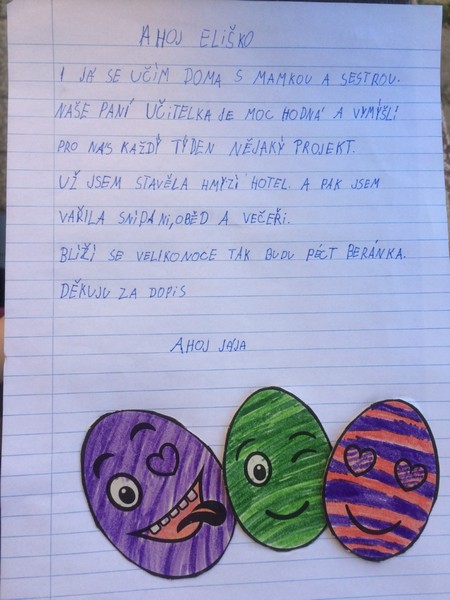 AHOJ ELIŠKO
I JÁ SE UČÍM DOMA S MAMKOU A SESTROU.
NAŠE PANÍ UČITELKA JE MOC HODNÁ A VYMÝŠLÍ
PRO NÁS KAŽDÝ TÝDEN NĚJAKÝ PROJEKT.
UŽ JSEM STAVĚLA HMYZÍ HOTEL A PAK JSEM
VAŘILA SNÍDANI, OBĚD A VEČEŘI.
BLÍŽÍ SE VELIKONOCE TAK BUDU PÉCT BERÁNKA.
DĚKUJU ZA DOPIS
AHOJ JÁJA